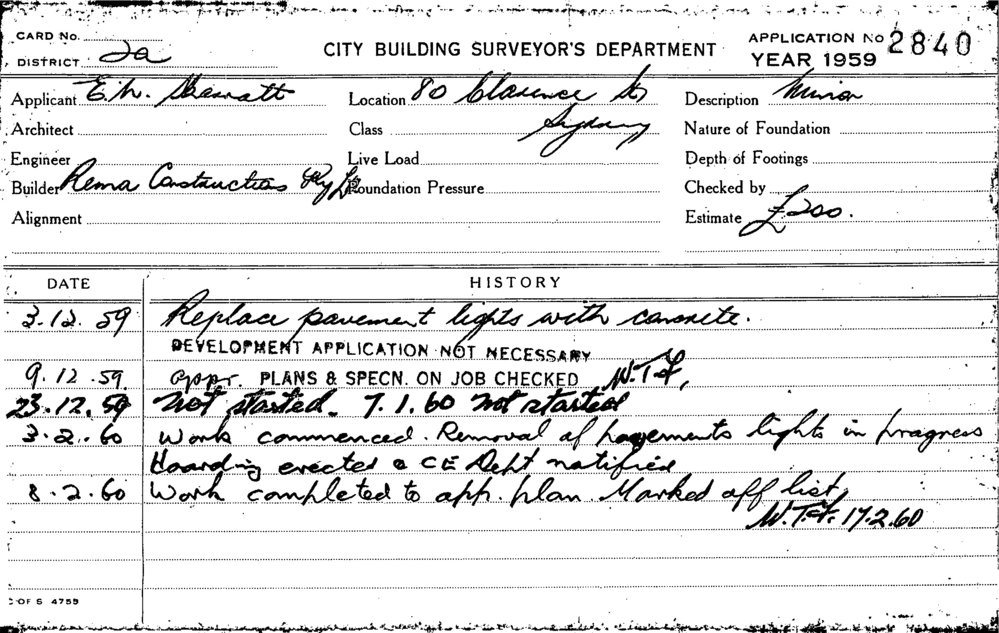 CARD No.
DISTRICT 2a
CITY BUILDING SURVEYOR'S DEPARTMENT
APPLICATION No 2840
YEAR 1959
Applicant E.W.
Location 80 Clarence St
Sydney
Description Minor
Architect
Class
Nature of Foundation
Engineer
Live Load
Depth of Footings
Builder Rema Constructions Pty Ltd
Foundation Pressure
Checked by
Alignment
Estimate £200.
DATE
HISTORY
3.12.59 Replace pavement lights with concrete.
DEVELOPMENT APPLICATION NOT NECESSARY
9.12.59. appr. PLANS & SPECN. ON JOB CHECKED W.T.F.
23.12.59 Not started. 7.1.60 Not started
3.2.60 Work commenced. Removal of pavements lights in progress
Hoarding erected & CE Dept notified
8.2.60 Work completed to app. plan. Marked off list,
W.T.F. 17.2.60
C OF S 4759